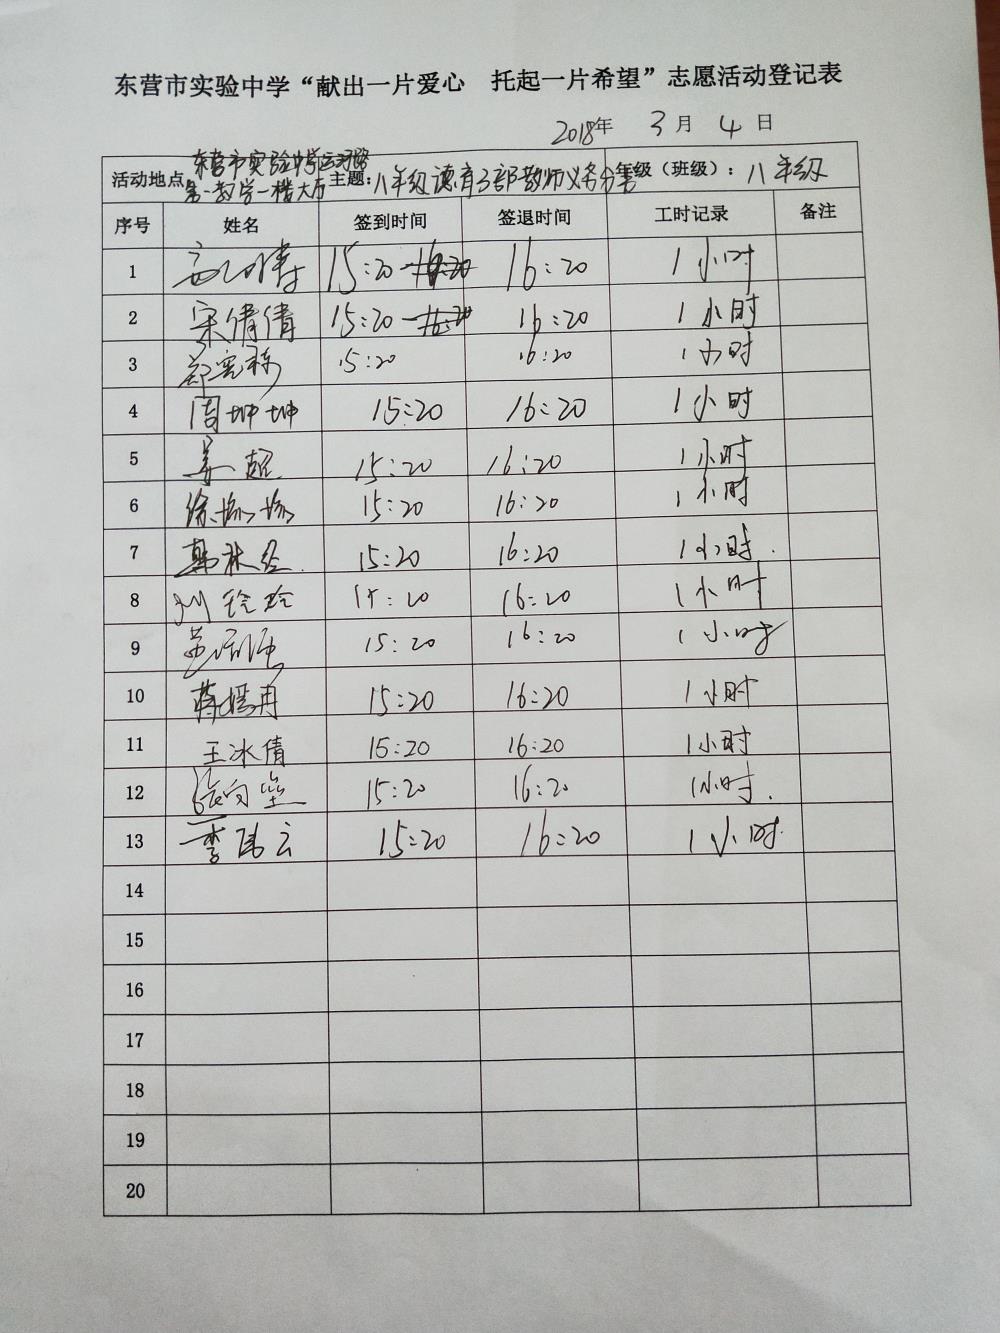 东营市实验中学“献出一片爱心 托起一片希望”志愿活动登记表
2018年 3月 4日
活动地点 东营市实验中学 主题：八年级德育三部教师义务分书 年级（班级）：八年级
第一教学一楼大厅
序号 姓名 签到时间 签退时间 工时记录 备注
1 15:20 16:20 16:20 1小时
2 宋倩倩 15:20 16:20 16:20 1小时
3 15:20 16:20 1小时
4 周坤坤 15:20 16:20 1小时
5 姜超 15:20 16:20 1小时
6 徐 15:20 16:20 1小时
7 韩 15:20 16:20 1小时.
8 刘玲玲 15:20 16:20 1小时
9 15:20 16:20 1小时
10 蒋 15:20 16:20 1小时
11 王冰倩 15:20 16:20 1小时
12 15:20 16:20 1小时.
13 李 云 15:20 16:20 1小时.
14
15
16
17
18
19
20